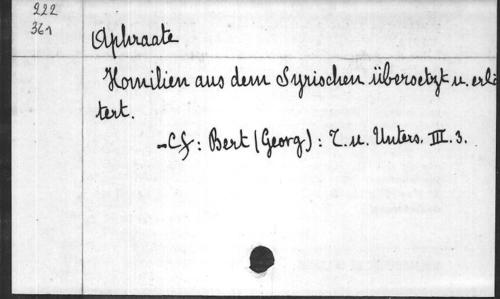 222
361
Aphraate
Homilien aus dem Syrischen übersetzt u. erlä
tert.
-Cf: Bert (Georg): T. u. Unters. III. 3.